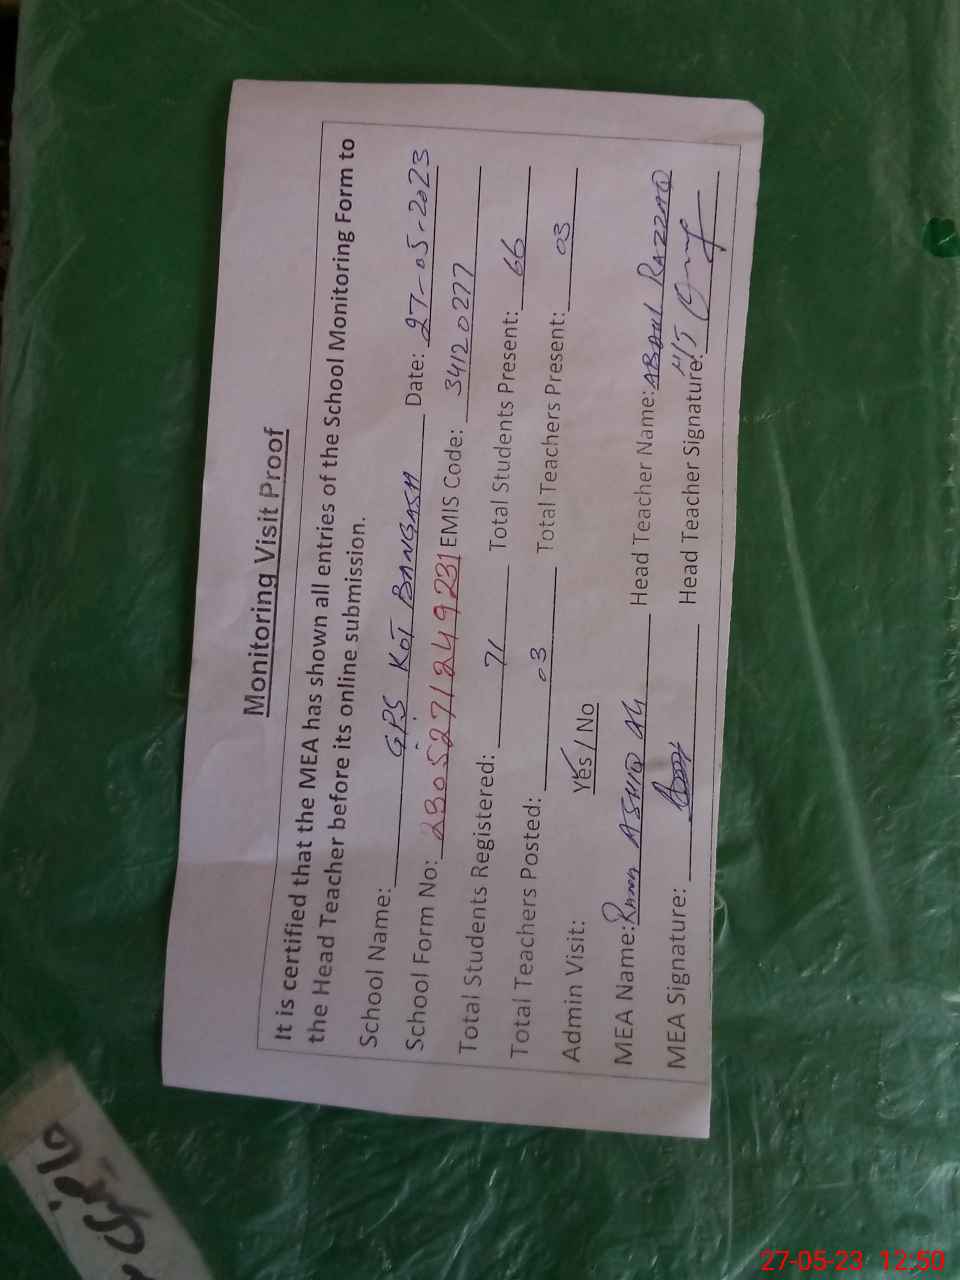 Monitoring Visit Proof
It is certified that the MEA has shown all entries of the School Monitoring Form to
the Head Teacher before its online submission.
School Name: GPS KOT BANGASH Date: 27-05-2023
School Form No: 2305271249231 EMIS Code: 34120277
Total Students Registered: 71 Total Students Present: 66
Total Teachers Posted: 03 Total Teachers Present: 03
Admin Visit: Yes / No
MEA Name: ASHIQ Ali Head Teacher Name: ABDUL RAZZAQ
MEA Signature: Head Teacher Signature:
27-05-23 12:50